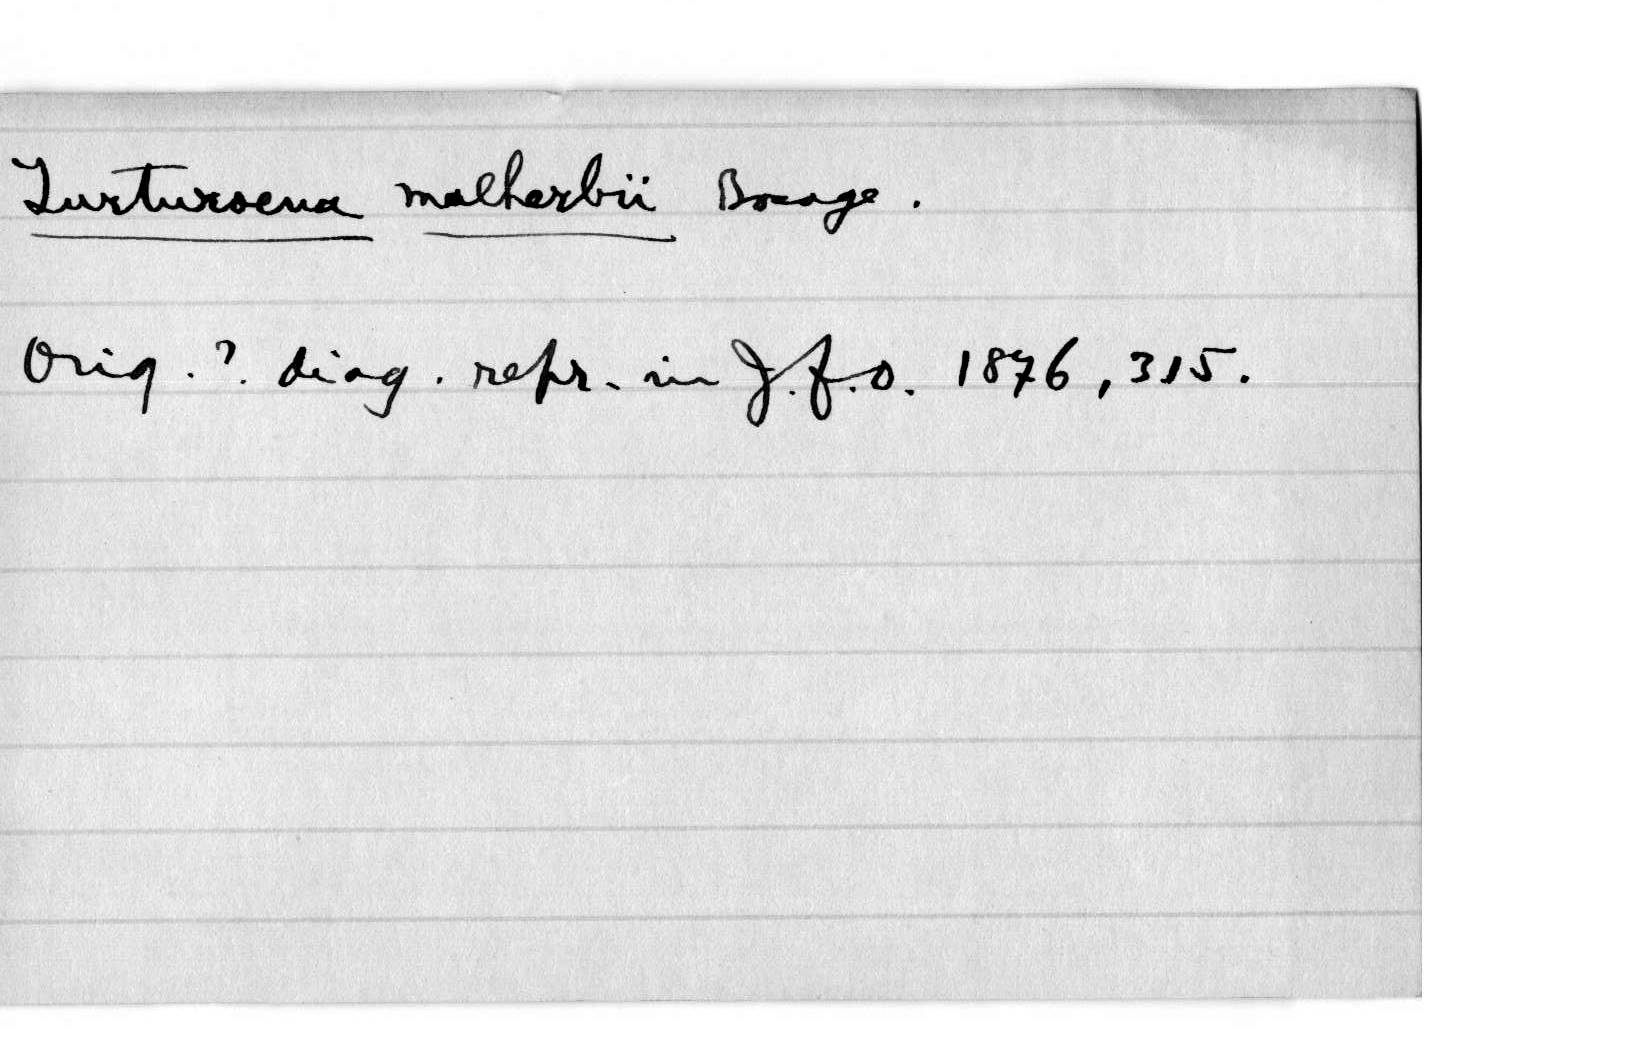 Turturoena malherbii Bocage.
Orig.?. diag. repr. in J.f.O. 1876, 315.